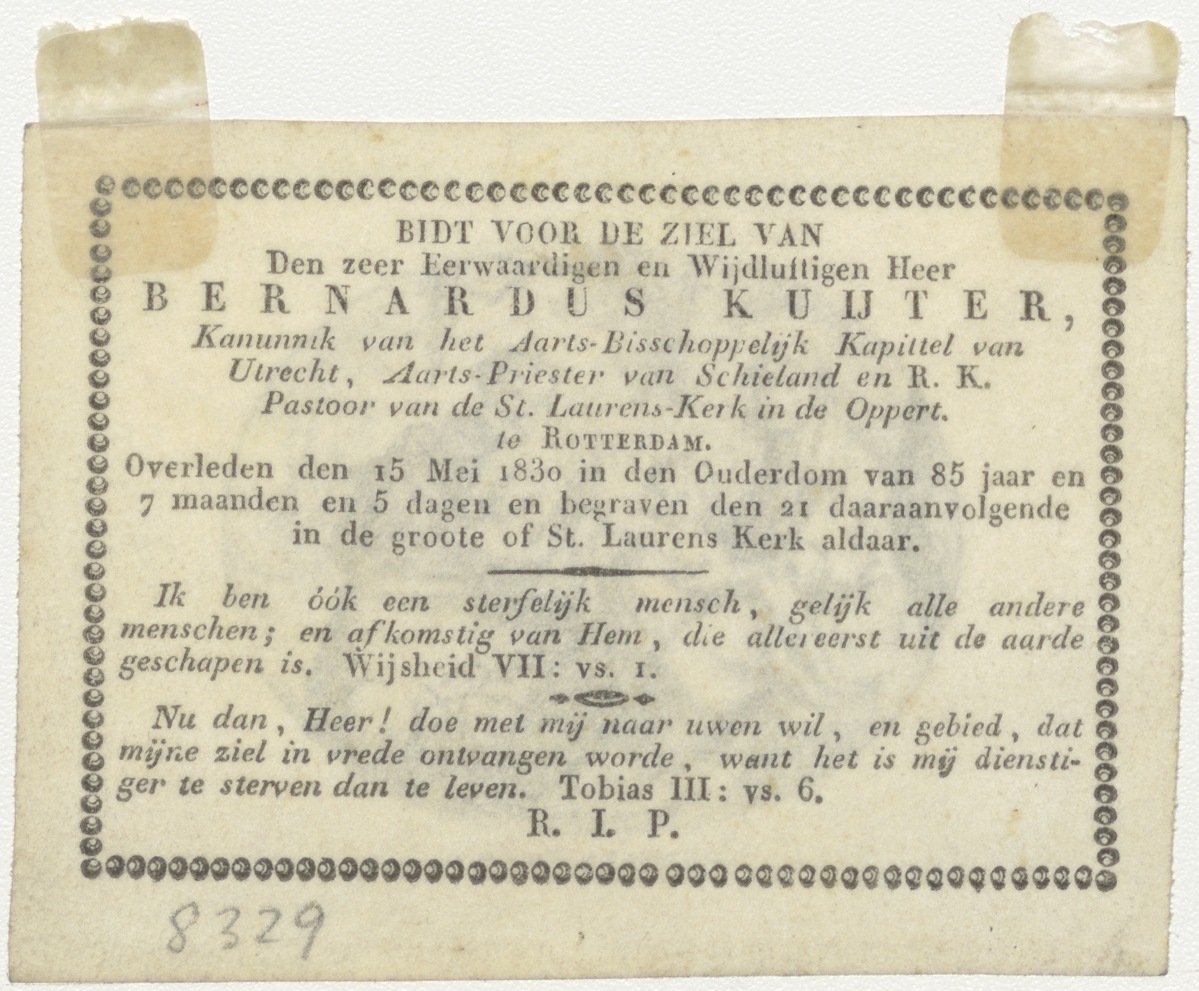 BIDT VOOR DE ZIEL VAN
Den zeer Eerwaardigen en Wijdluftigen Heer
BERNARDUS KUIJTER,
Kanunnik van het Aarts-Bisschoppelijk Kapittel van
Utrecht, Aarts-Priester van Schieland en R. K.
Pastoor van de St. Laurens-Kerk in de Oppert.
te ROTTERDAM.
Overleden den 15 Mei 1830 in den Ouderdom van 85 jaar en
7 maanden en 5 dagen en begraven den 21 daaraanvolgende
in de groote of St. Laurens Kerk aldaar.
Ik ben óók een sterfelijk mensch, gelijk alle andere
menschen; en afkomstig van Hem, die allereerst uit de aarde
geschapen is. Wijsheid VII: vs. 1.
Nu dan, Heer! doe met mij naar uwen wil, en gebied, dat
mijne ziel in vrede ontvangen worde, want het is mij diensti-
ger te sterven dan te leven. Tobias III: vs. 6.
R. I. P.
8329